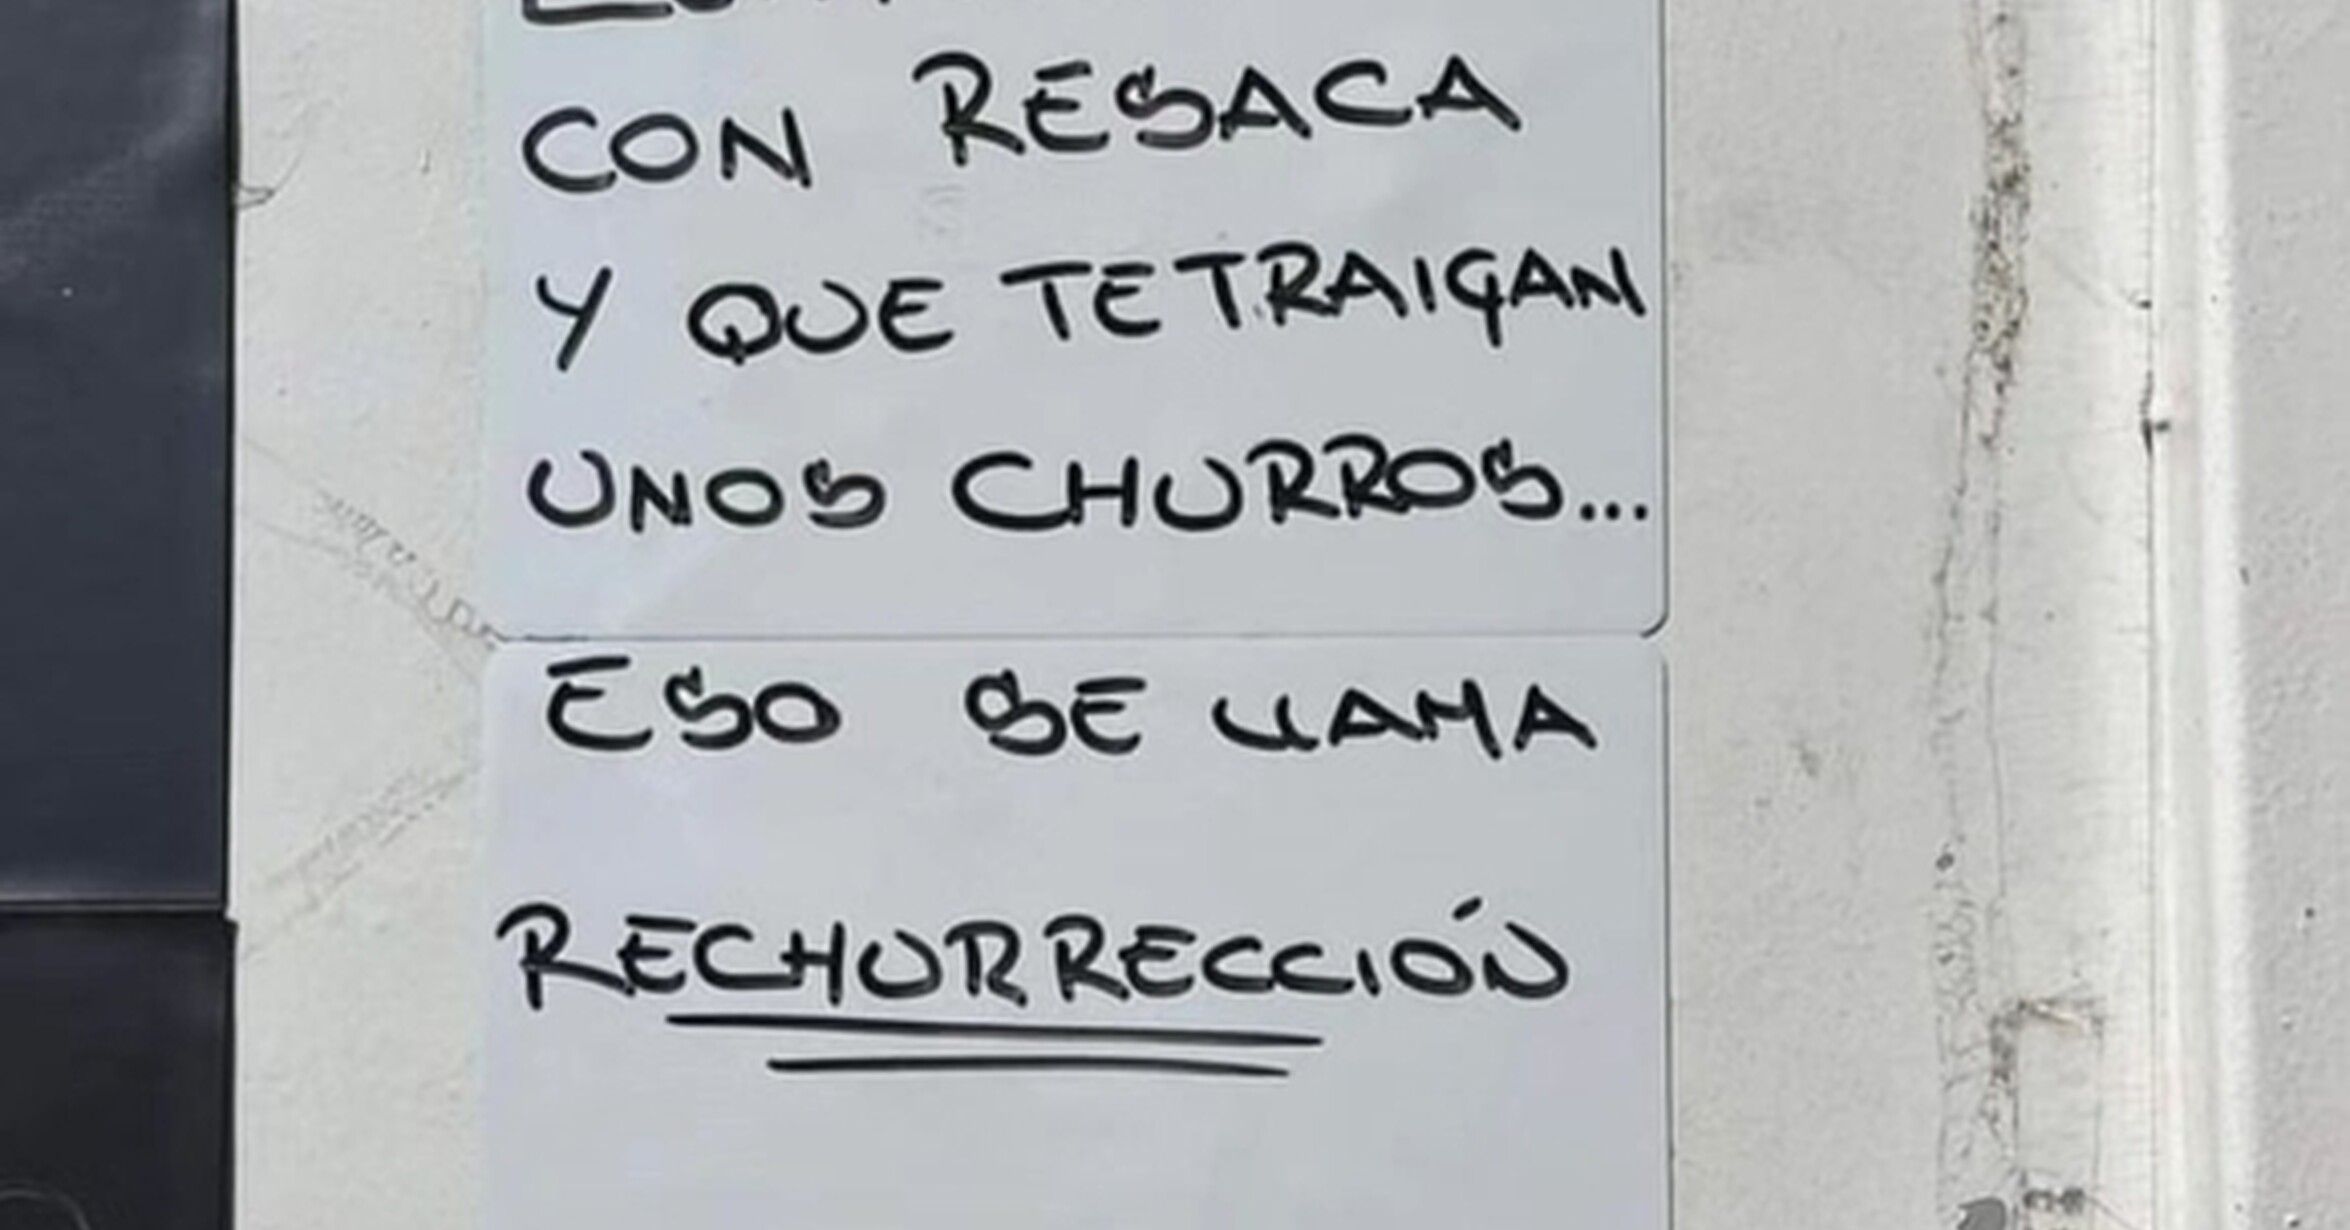 CON RESACA
Y QUE TE TRAIGAN
UNOS CHURROS...
ESO SE LLAMA
RECHURRECCIÓN